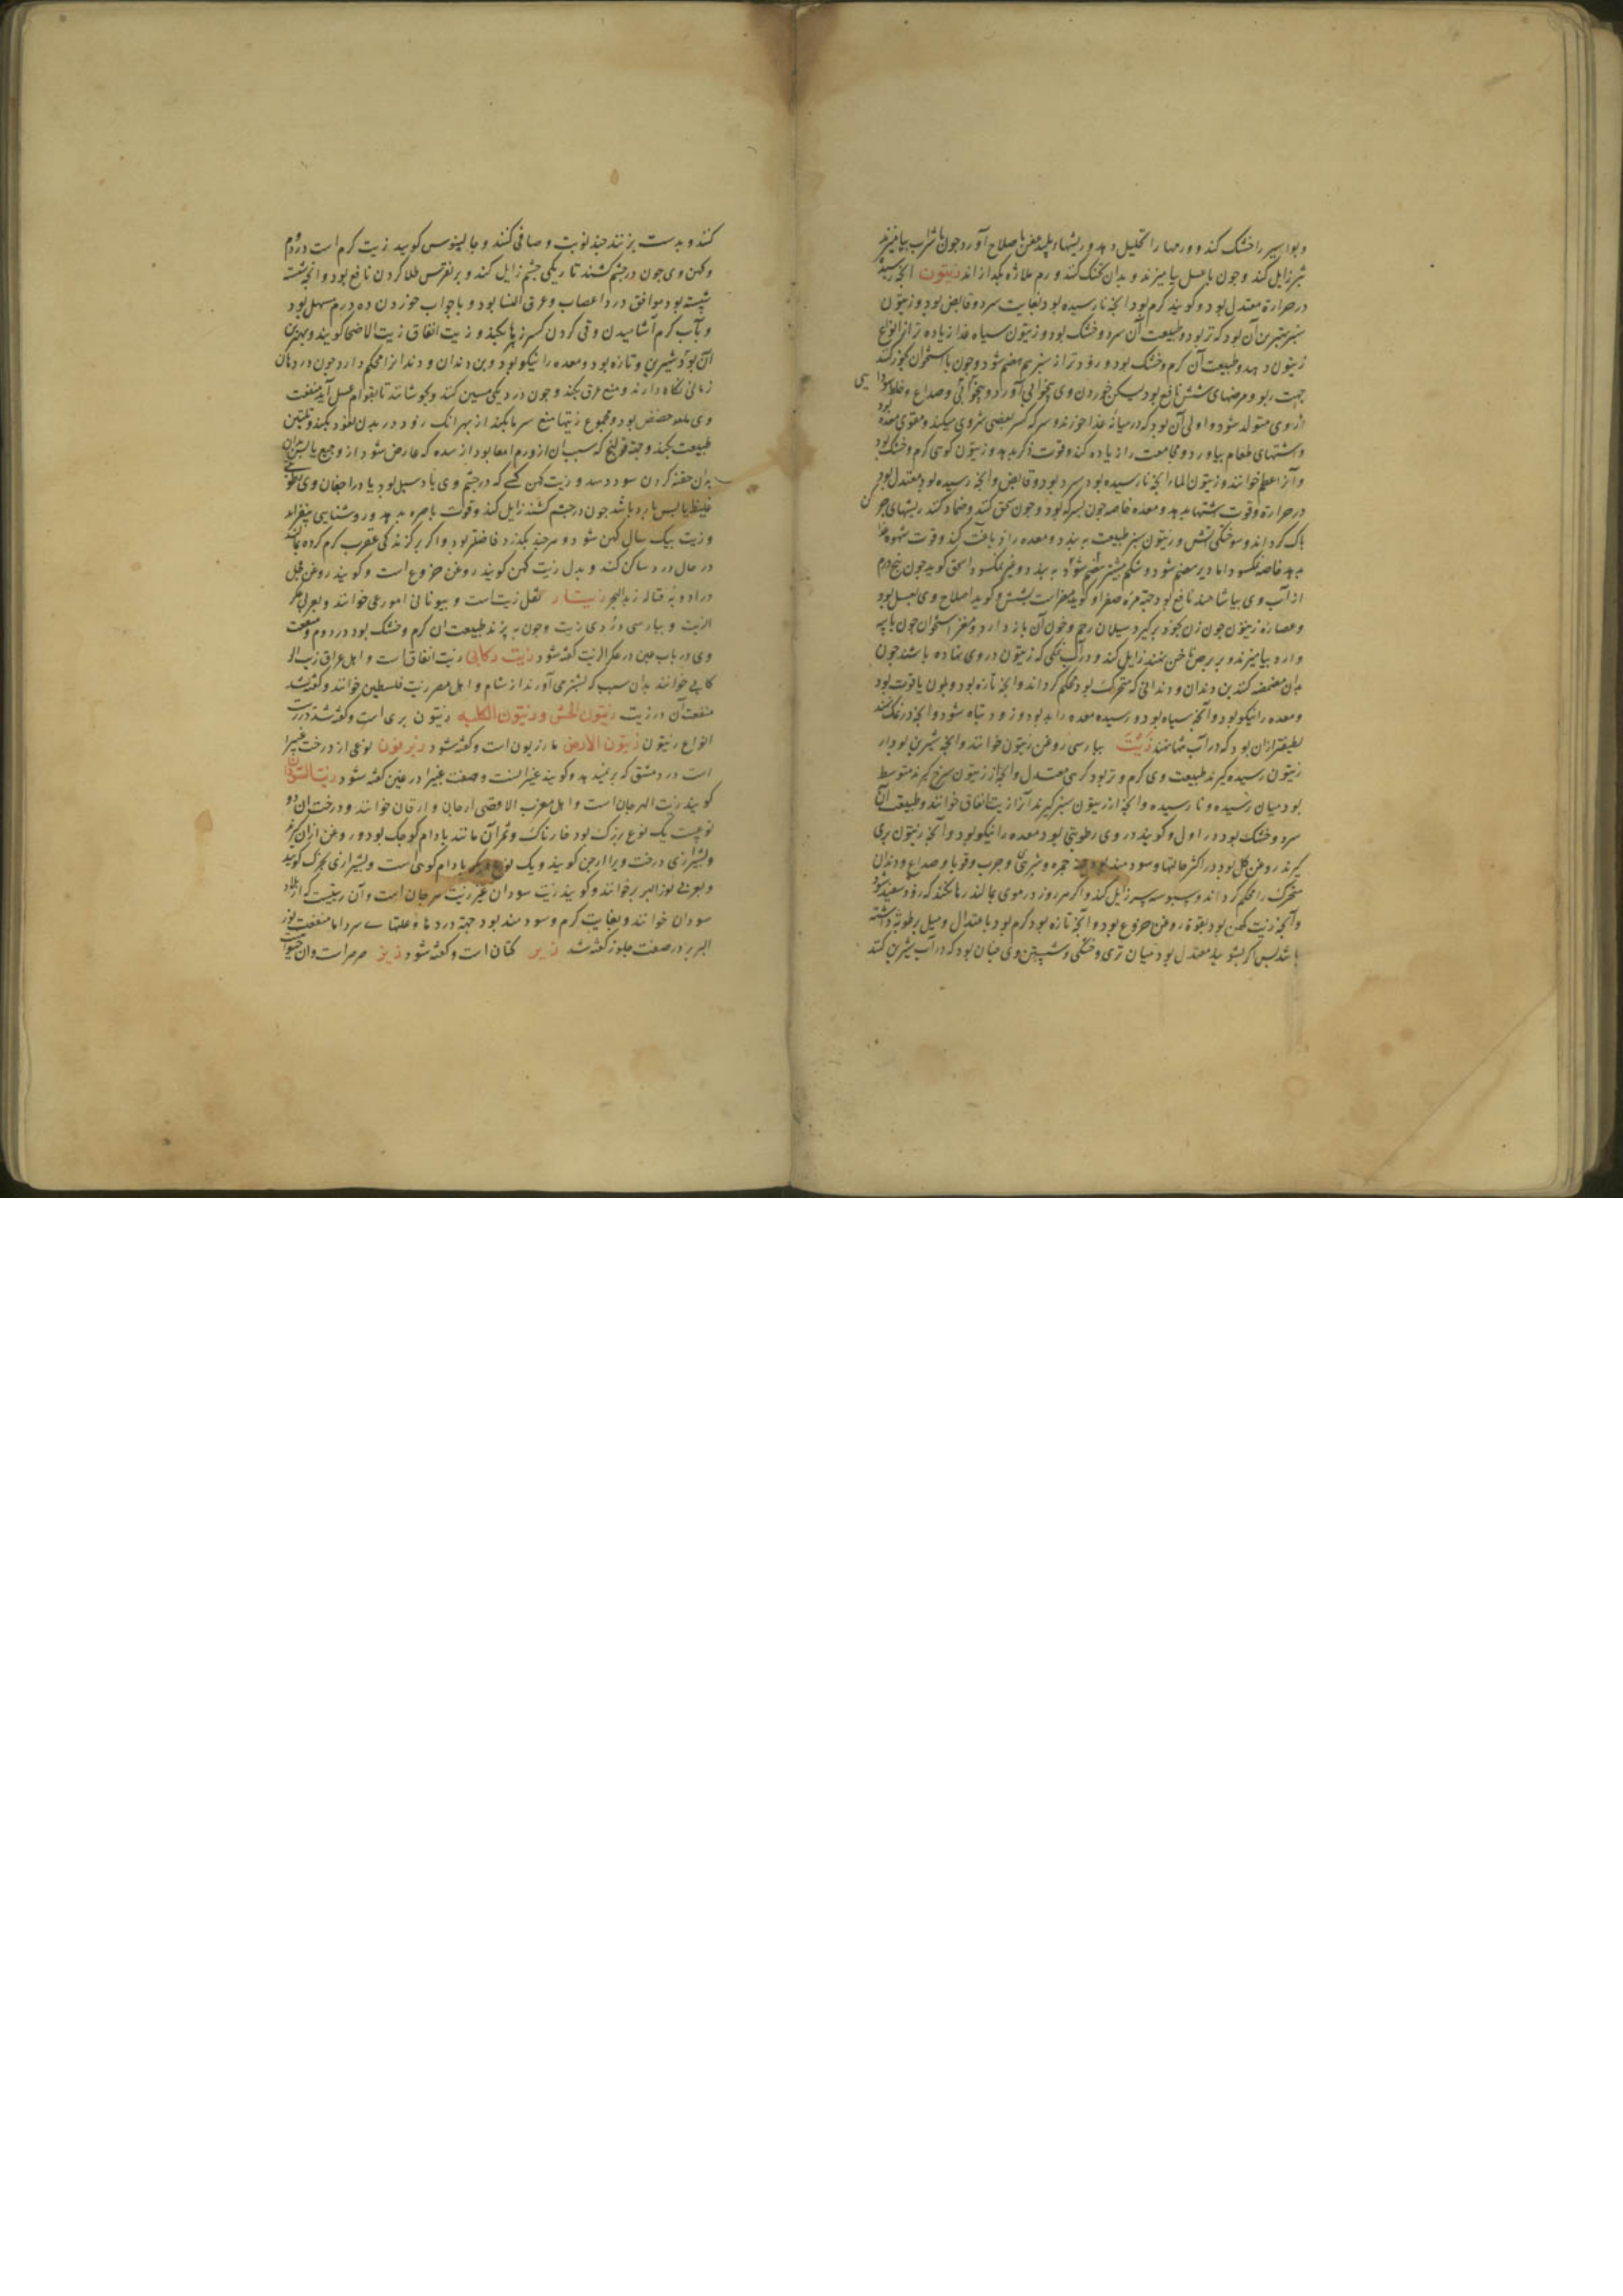 و بواسیر را خشک کند و ورمها را تحلیل دهد و ریشهاء پلید عفن باصلاح آورد و چون با شراب بیامیزند
زایل کند و چون با عسل بیامیزند و بدان تحنک کنند ورم ملازه بگدازاند زیتون انجه رسیده
در حرارة معتدل بود و گویند گرم بود انجه نارسیده بود بغایت سرد و قابض بود و زیتون
سبز بهترین آن بود که تر بود و طبیعت آن سرد و خشک بود و زیتون سیاه غذا زیاده تر از انواع
زیتون دهد و طبیعت آن گرم و خشک بود و زودتر از سبز هضم شود و چون با استخوان بخور کنند
جهت ربو و مرضهای شش نافع بود لیکن خوردن وی بیخوابی آورد و صداع و خلط سودایی
از وی متولد شود و اولی آن بود که در میانه غذا خورند و سرکه کسر بعضی میکند و مقوی معده بود
و اشتهای طعام بیاورد و مجامعت را زیاده کند و قوت ذکر بدهد و زیتون کوهی گرم و خشک بود
خوانند و زیتون الماء انجه نارسیده بود سرد بود و قابض و انجه رسیده بود معتدل بود
در حرارة و قوت اشتها بدهد و معده خاصه چون بسرکه بود و چون سحق کنند و ضماد کنند ریشهای
پاک گرداند و سوختگی آتش و زیتون سبز طبیعت ببندد و معده را دباغت کند و قوت شهوة
بدهد خاصه نمکسود اما دیر هضم شود
از آب وی بیاشامند نافع بود جهة مره صفرا و گوید مضر است بشش و گوید اصلاح وی بعسل بود
و عصاره زیتون چون زن بخود برگیرد سیلان رحم و خون آن باز دارد و مغز استخوان چون با پیه
و آرد بیامیزند و بر برص ناخن نهند زایل کند و در آب نمکی که زیتون در وی نهاده باشند چون
بدان مضمضه کنند بن دندان و دندانی که متحرک بود محکم گرداند و انچه تازه بود و بلون یاقوت بود
و معده را نیکو بود و آنچه سیاه بود و رسیده معده را بد بود و زود تباه شود و انچه در نمک نهند
لطیفتر از ان بود که در آب نهند زیت بپارسی روغن زیتون خوانند و انچه شیرین بود از
زیتون رسیده گیرند طبیعت وی گرم و تر بود گرمی معتدل و انچه از زیتون سرخ گیرند متوسط
بود میان رسیده و نارسیده و انچه از زیتون سبز گیرند آنرا زیت انفاق خوانند و طبیعت آن
سرد و خشک بود در اول و گویند در وی رطوبتی بود معده را نیکو بود و آنچه زیتون بری
گیرند روغن گل بود در اکثر حالها و سودمند بود جهة حمره و شری و جرب و قوبا و صداع و دندان
متحرک را محکم گرداند و سبوسه سر زایل کند و اگر هر روز در موی بمالند رها نکند که زود سفید شود
و آنچه زیت کهن بود بقوة روغن خروع بود و آنچه تازه بود گرم بود باعتدال و میل برطوبة داشته
باشد پس اگر بشویند معتدل بود میان تری و خشکی و شستن وی چنان بود که در آب شیرین کنند
کنند و بدست بزنند چند نوبت و صافی کنند و جالینوس گوید زیت گرم است در دوم
و کهن وی چون در چشم کشند تاریکی چشم زایل کند و بر نقرس طلا کردن نافع بود و انچه شسته
بود موافق درد اعصاب و عرق النسا بود و با جواب خوردن ده درم مسهل بود
و بآب گرم آشامیدن و قی کردن کسر زهرها بکند و زیت انفاق زیت الاضحا گویند و بهترین
آن بود که شیرین و تازه بود و معده را نیکو بود و بن دندان و دندانرا محکم دارد چون در دهان
زمانی نگاه دارند و منع عرق بکند و چون در دیگ مسین کنند و بجوشانند تا بقوام عسل آید منفعت
وی مانند حضض بود و مجموع زیتها منع سرما بکند از بهر انک زود در بدن نفوذ بکند و تلیین
طبیعت بکند و جهة قولنج که سبب ان از ورم امعا بود از سده که عارض شود
بدان حقنه کردن سود دهد و زیت کهن کسی که در چشم وی باد سبل بود یا در اجفان وی
غلیظ باشد چون در چشم کشند زایل کند و قوت باصره بدهد و روشنایی بیفزاید
و زیت بیک سال کهن شود و هرچند بگذرد فاضلتر بود و اگر بر گزندگی عقرب گرم کرده بمالند
در حال درد ساکن کند و بدل زیت کهن گویند روغن خروع است و گویند روغن
زیتار ثقل زیت است و بیونانی امورعی خوانند و بعربی عکر
الزیت و بپارسی دردی زیت و چون بپزند طبیعت ان گرم و خشک بود در دوم و منفعت
وی در باب عین در عکر الزیت گفته شود زیت رکابی زیت انفاق است و اهل عراق
رکابی خوانند بدان سبب که بشتر می آورند از شام و اهل مصر زیت فلسطین خوانند و گفته شد
منفعت آن در زیت زیتون الحبش و زیتون الکلبه زیتون بری است و گفته شد در
انواع زیتون زیتون الارض مازریون است و گفته شود زیرفون نوعی از درخت غبیرا
است در دمشق که بر نمیدهد و گویند غبیراست و صفت غبیرا در غین گفته شود زیت السودان
گویند زیت الهرجان است و اهل مغرب الاقصی ارجان و ارقان خوانند و درخت ان دو
نوعست یک نوع بزرگ بود خارناک و ثمر آن مانند بادام کوچک بود و روغن ازان گیرند
و بشیرازی درخت ویرا ارجن گویند و یک نوع دیگر بادام کوهی است و بشیرازی بخرک گویند
و بعربی لوز البربر خوانند و گویند زیت سودان غیر زیت هرجان است و آن زیتیست که از بلاد
سودان خوانند و بغایت گرم و سودمند بود جهة دردها و علتهاے سرد اما منفعت لوز
البربر در صفت جلوز گفته شد زیر کتان است و گفته شود زیز صرصر است و ان حیوانی